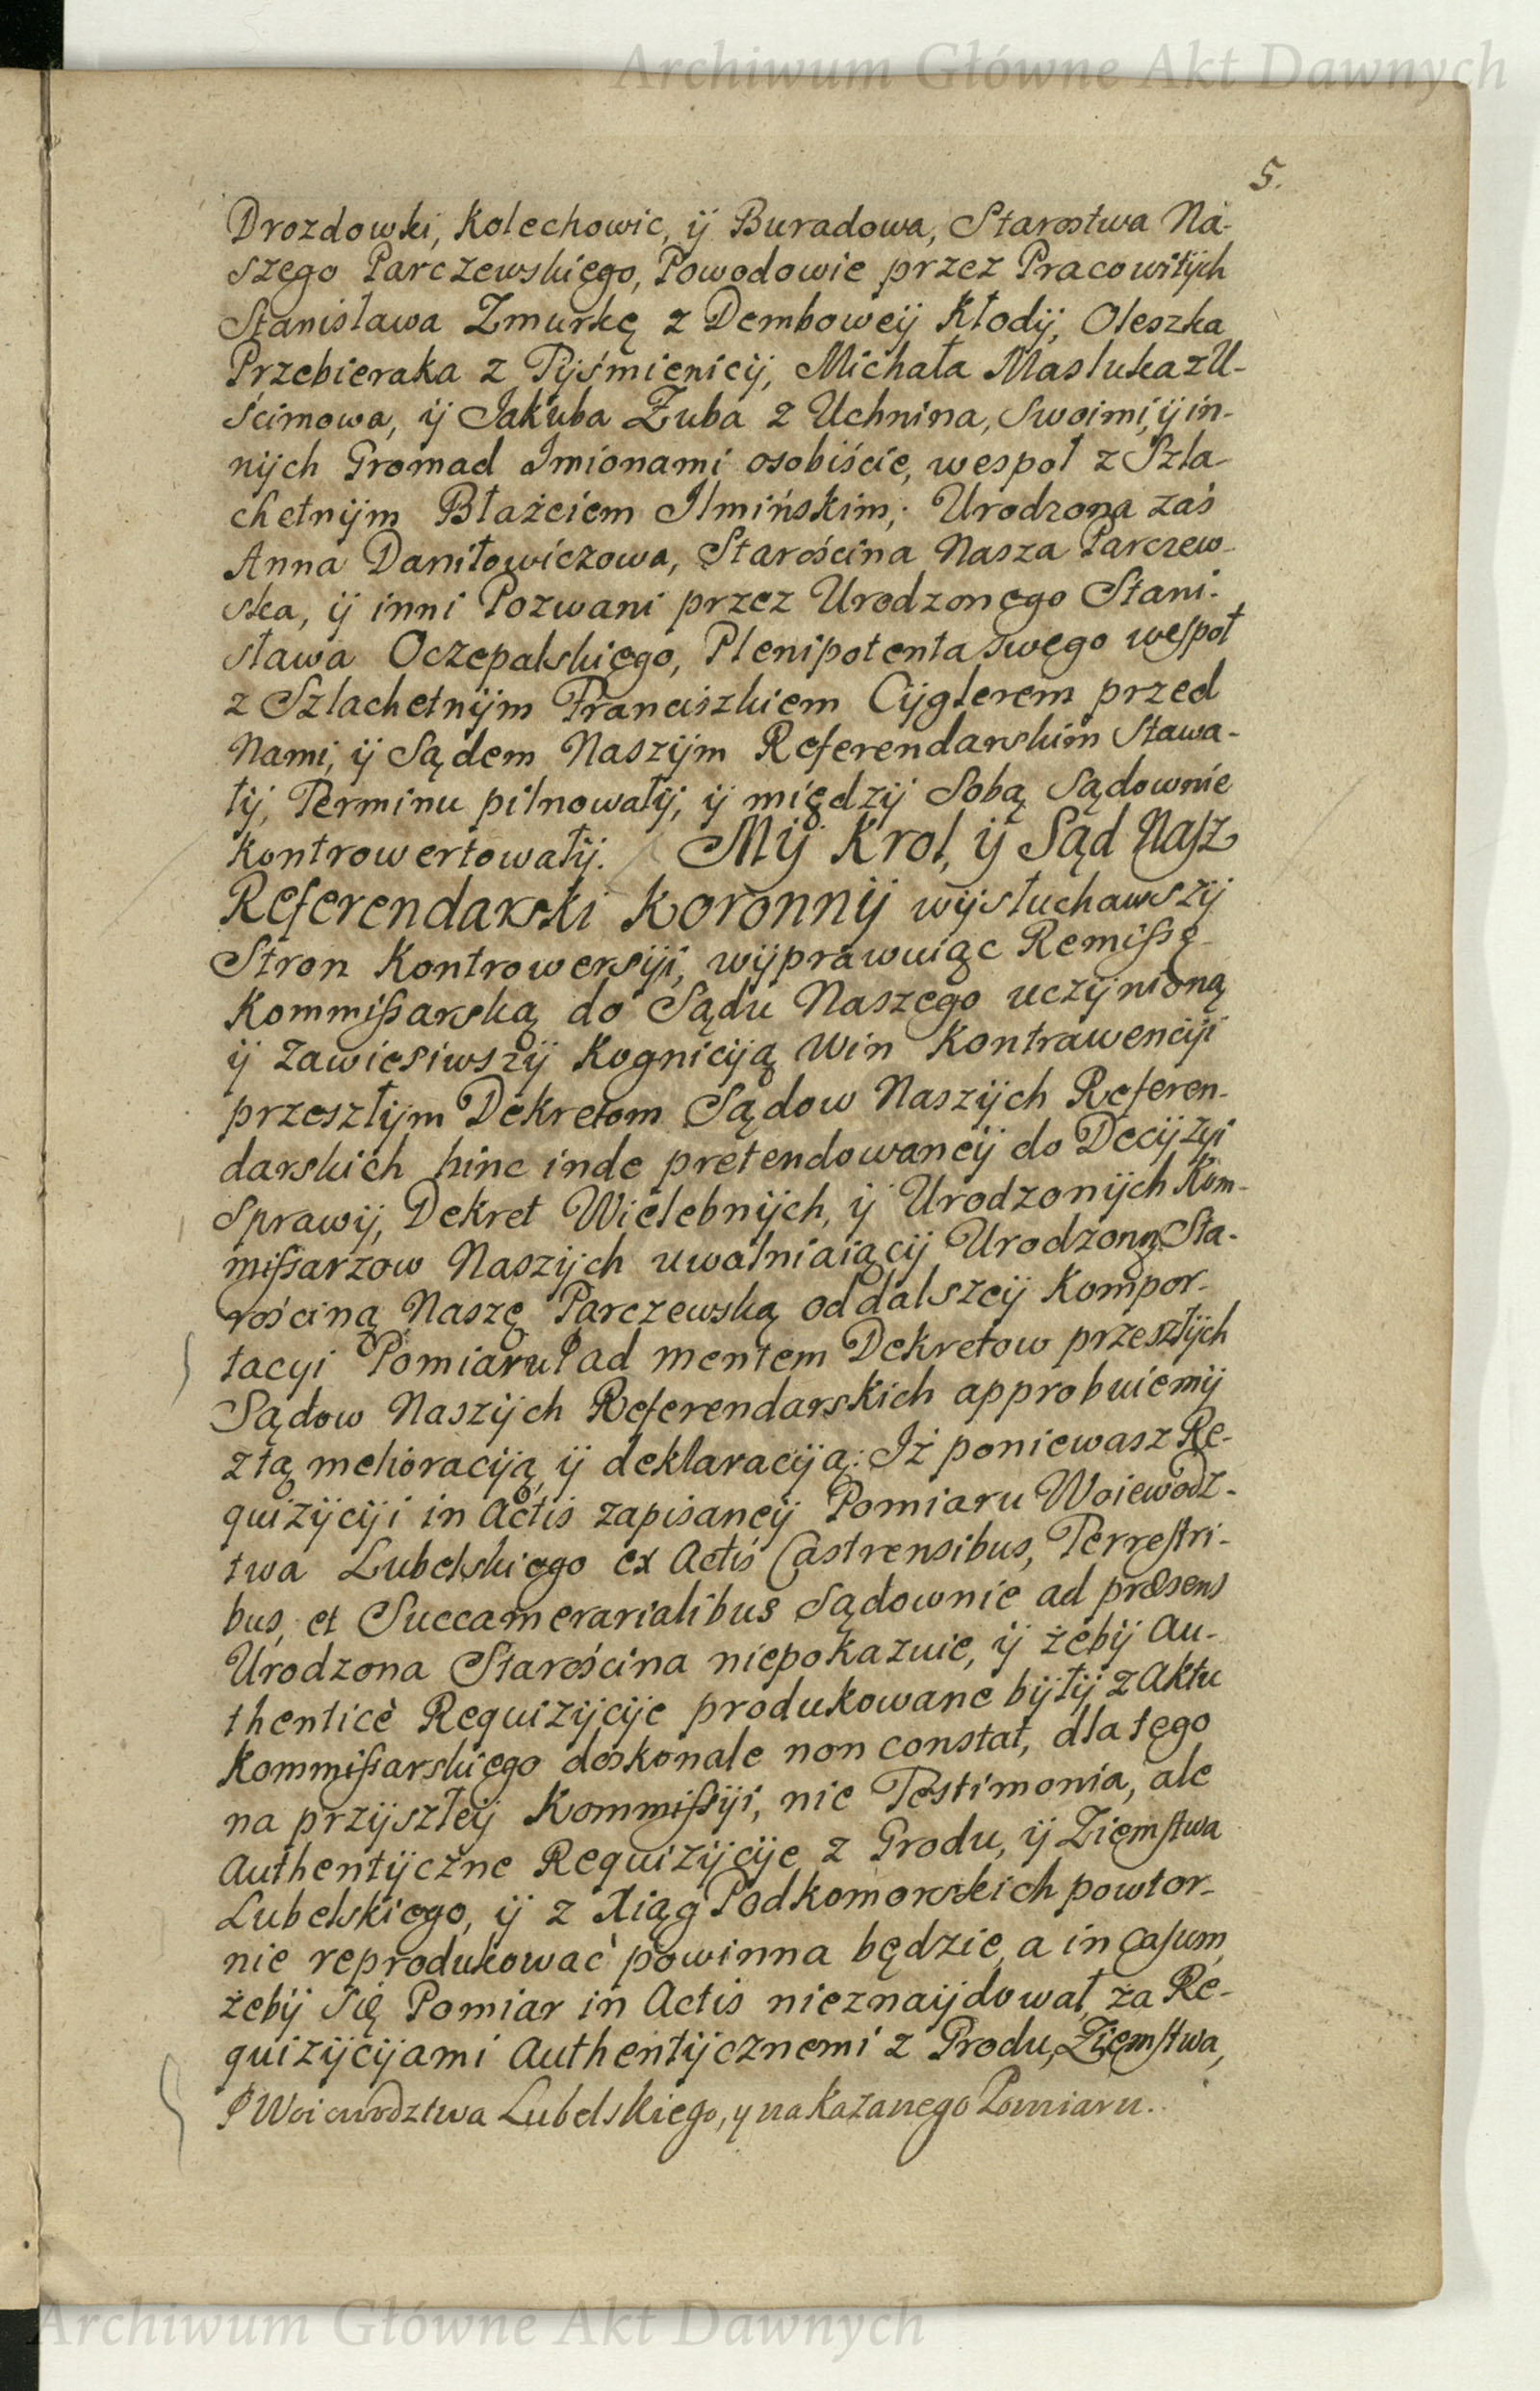 Archiwum Główne Akt Dawnych
5.
Drozdowki, Kolechowic, ij Buradowa, Starostwa Na-
szego Parczewskięgo, Powodowie przez Pracowitijch
Stanisława Zmurkę z Demboweij Kłodij, Oleszka
Przebieraka z Tijśmienicij, Michała Masluka z U-
ścimowa, ij Jakuba Zuba z Uchnina, Swoimi, ij in-
nijch Gromad Jmionami osobiście, wespoł z Szla-
chetnijm Błażeiem Jlmińskim; Urodzona zaś
Anna Daniłowiczowa, Starościna Nasza Parczew-
ska, ij inni Pozwani przez Urodzonego Stani-
sława Oczepalskięgo, Plenipotenta swego wespoł
z Szlachetnijm Franciszkiem Cijglerem przed
Nami, ij Sądem Naszijm Referendarskim Stawa-
łij, Terminu pilnowałij, ij międzij Sobą Sądownie
kontrowertowałij. Mij Krol, ij Sąd Nasz
Referendarski Koronnij wijsłuchawszij
Stron Kontrowersiji, wijprawuiąc Remissę
Kommissarską do Sądu Naszego uczijnioną
ij zawiesiwszij Kognicijją Win Kontrawenciji
przeszłijm Dekretom Sądow Naszijch Referen-
darskich hinc inde pretendowaneij do Decijzyi
Sprawij, Dekret Wielebnijch, ij Urodzonijch Kom-
missarzow Naszijch uwalniaiącij Urodzoną Sta-
rościną Naszę Parczewską od dalszeij Kompor-
tacyi Pomiaru ad mentem Dekretow przeszłijch
Sądow Naszijch Referendarskich approbuiemij
z tą melioracijją, ij deklaracijją: Iż poniewasz Re-
quizijciji in Actis zapisaneij Pomiaru Woiewodz-
twa Lubelskiego ex Actis Castrensibus, Terrestri-
bus, et Succamerarialibus Sądownie ad præsens
Urodzona Starościna niepokazuie, ij żebij Au-
thenticè Requizijcije produkowane bijłij z Aktu
Kommissarskięgo doskonale non constat, dla tęgo
na przijszłeij Kommissiji, nie Testimonia, ale
Authentijczne Requizijcije z Grodu, ij Ziemstwa
Lubelskiego, ij z Xiąg Podkomorskich powtor-
nie reprodukować powinna będzie, a in casum,
żebij Się Pomiar in Actis nieznaijdował, za Re-
quizijcijami Authentijcznemi z Grodu, Ziemstwa,
Woiewodztwa Lubelskiego, y nakazanego Pomiaru.
Archiwum Główne Akt Dawnych